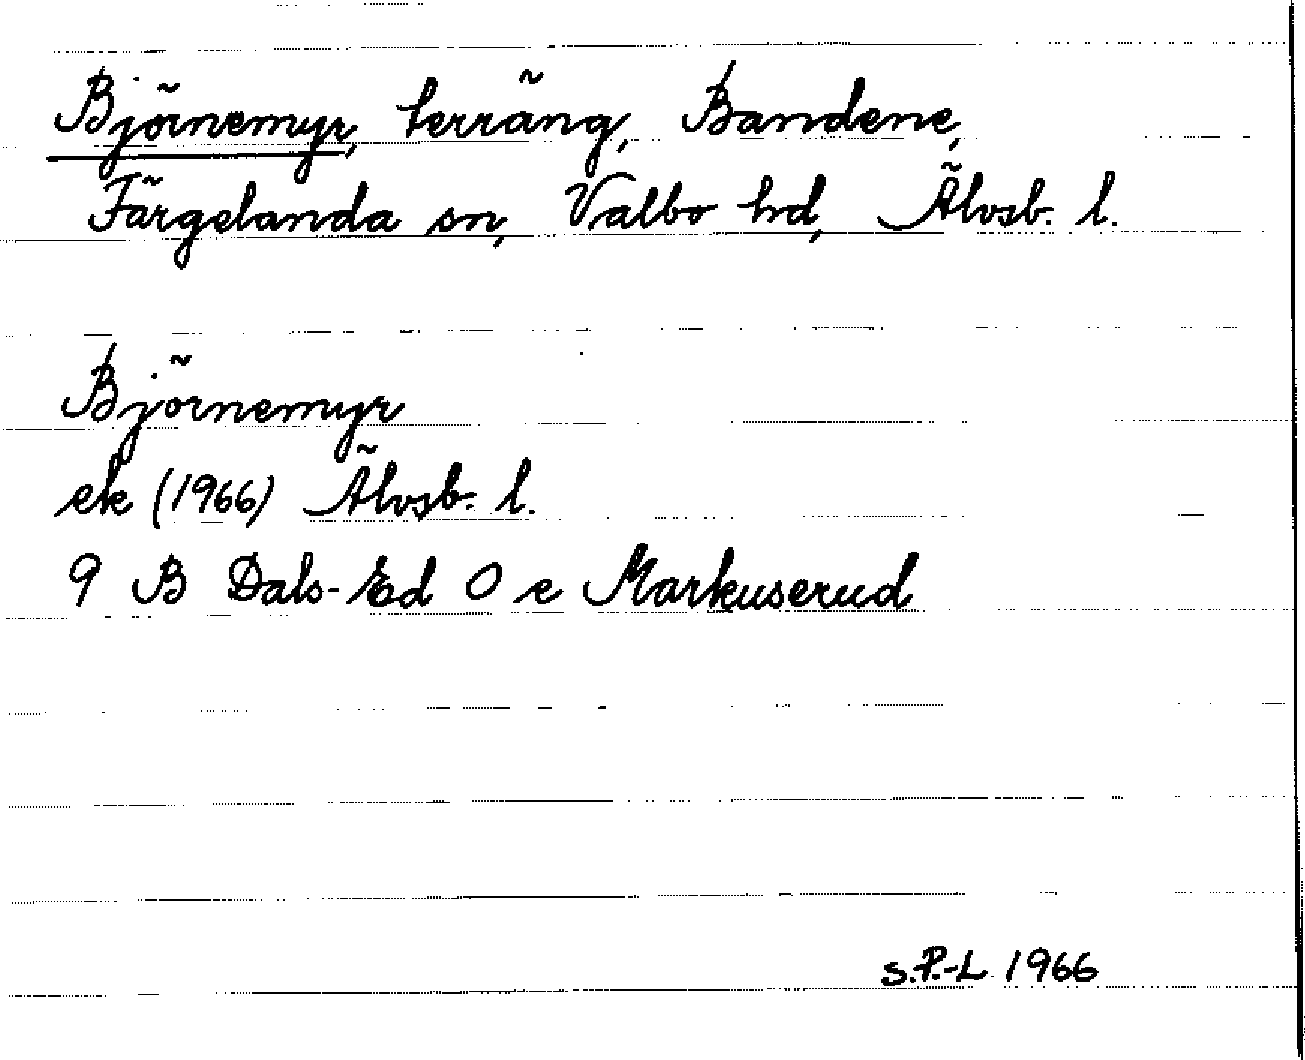 Björnemyr, terräng, Bandene,
Färgelanda sn, Valbo hd, Älvsb. l.
Björnemyr
ek (1966) Älvsb. l.
9 B Dals-Ed O e Markuserud
S.P.-L 1966